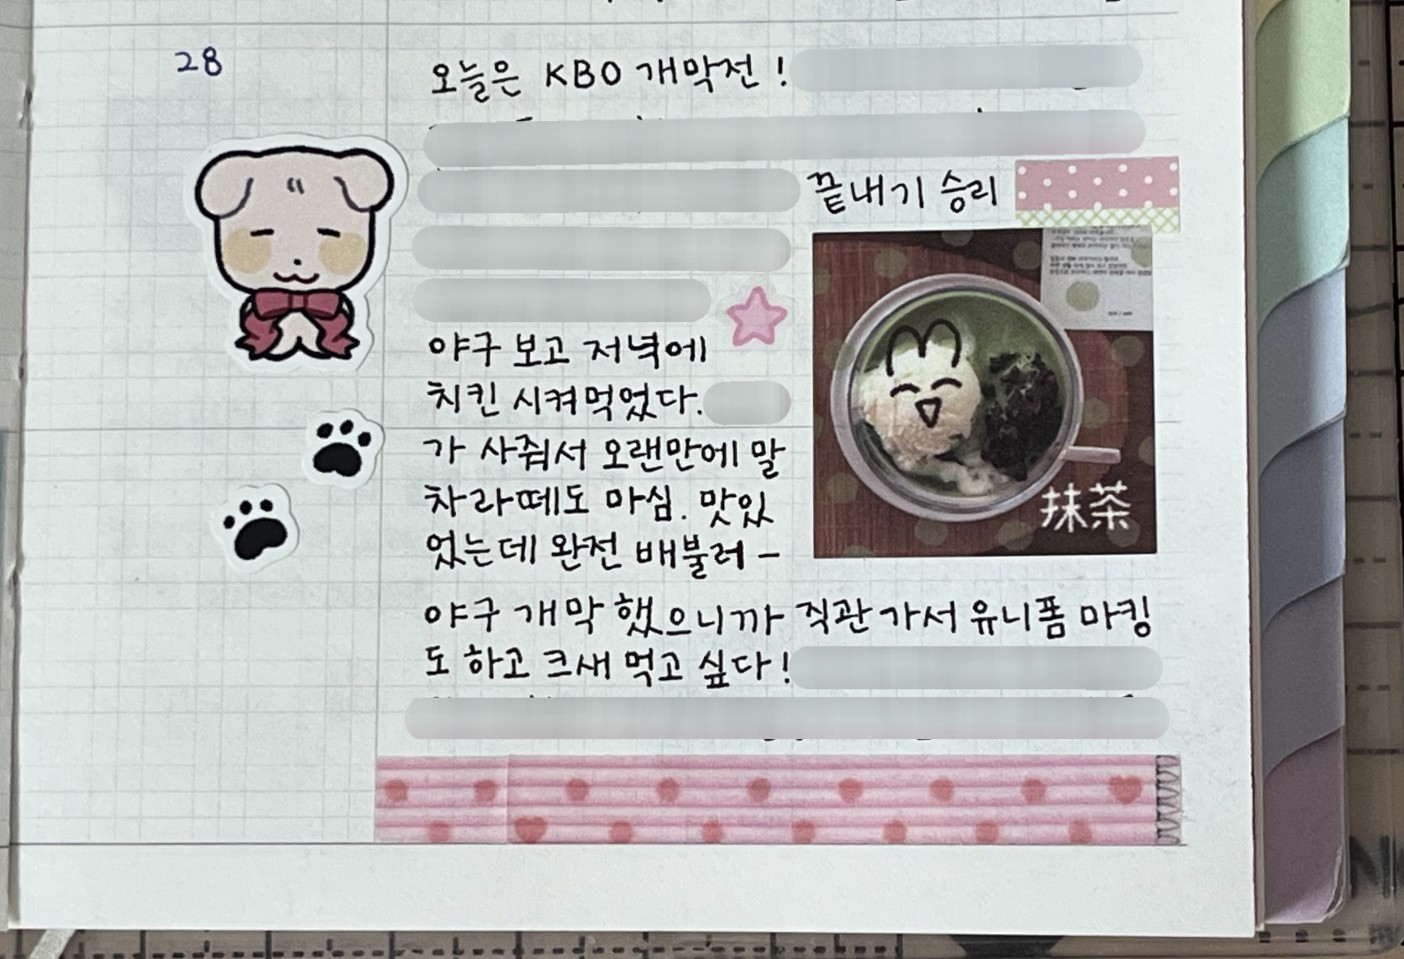 28
오늘은 KBO 개막전!
끝내기 승리
야구 보고 저녁에
치킨 시켜먹었다.
가 사줘서 오랜만에 말
차라떼도 마심. 맛있
었는데 완전 배불러 -
抹茶
야구 개막 했으니까 직관 가서 유니폼 마킹
도 하고 크새 먹고 싶다!